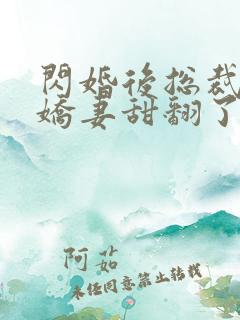 閃婚後総裁
嬌妻甜翻了
阿茹
未經同意禁止轉載